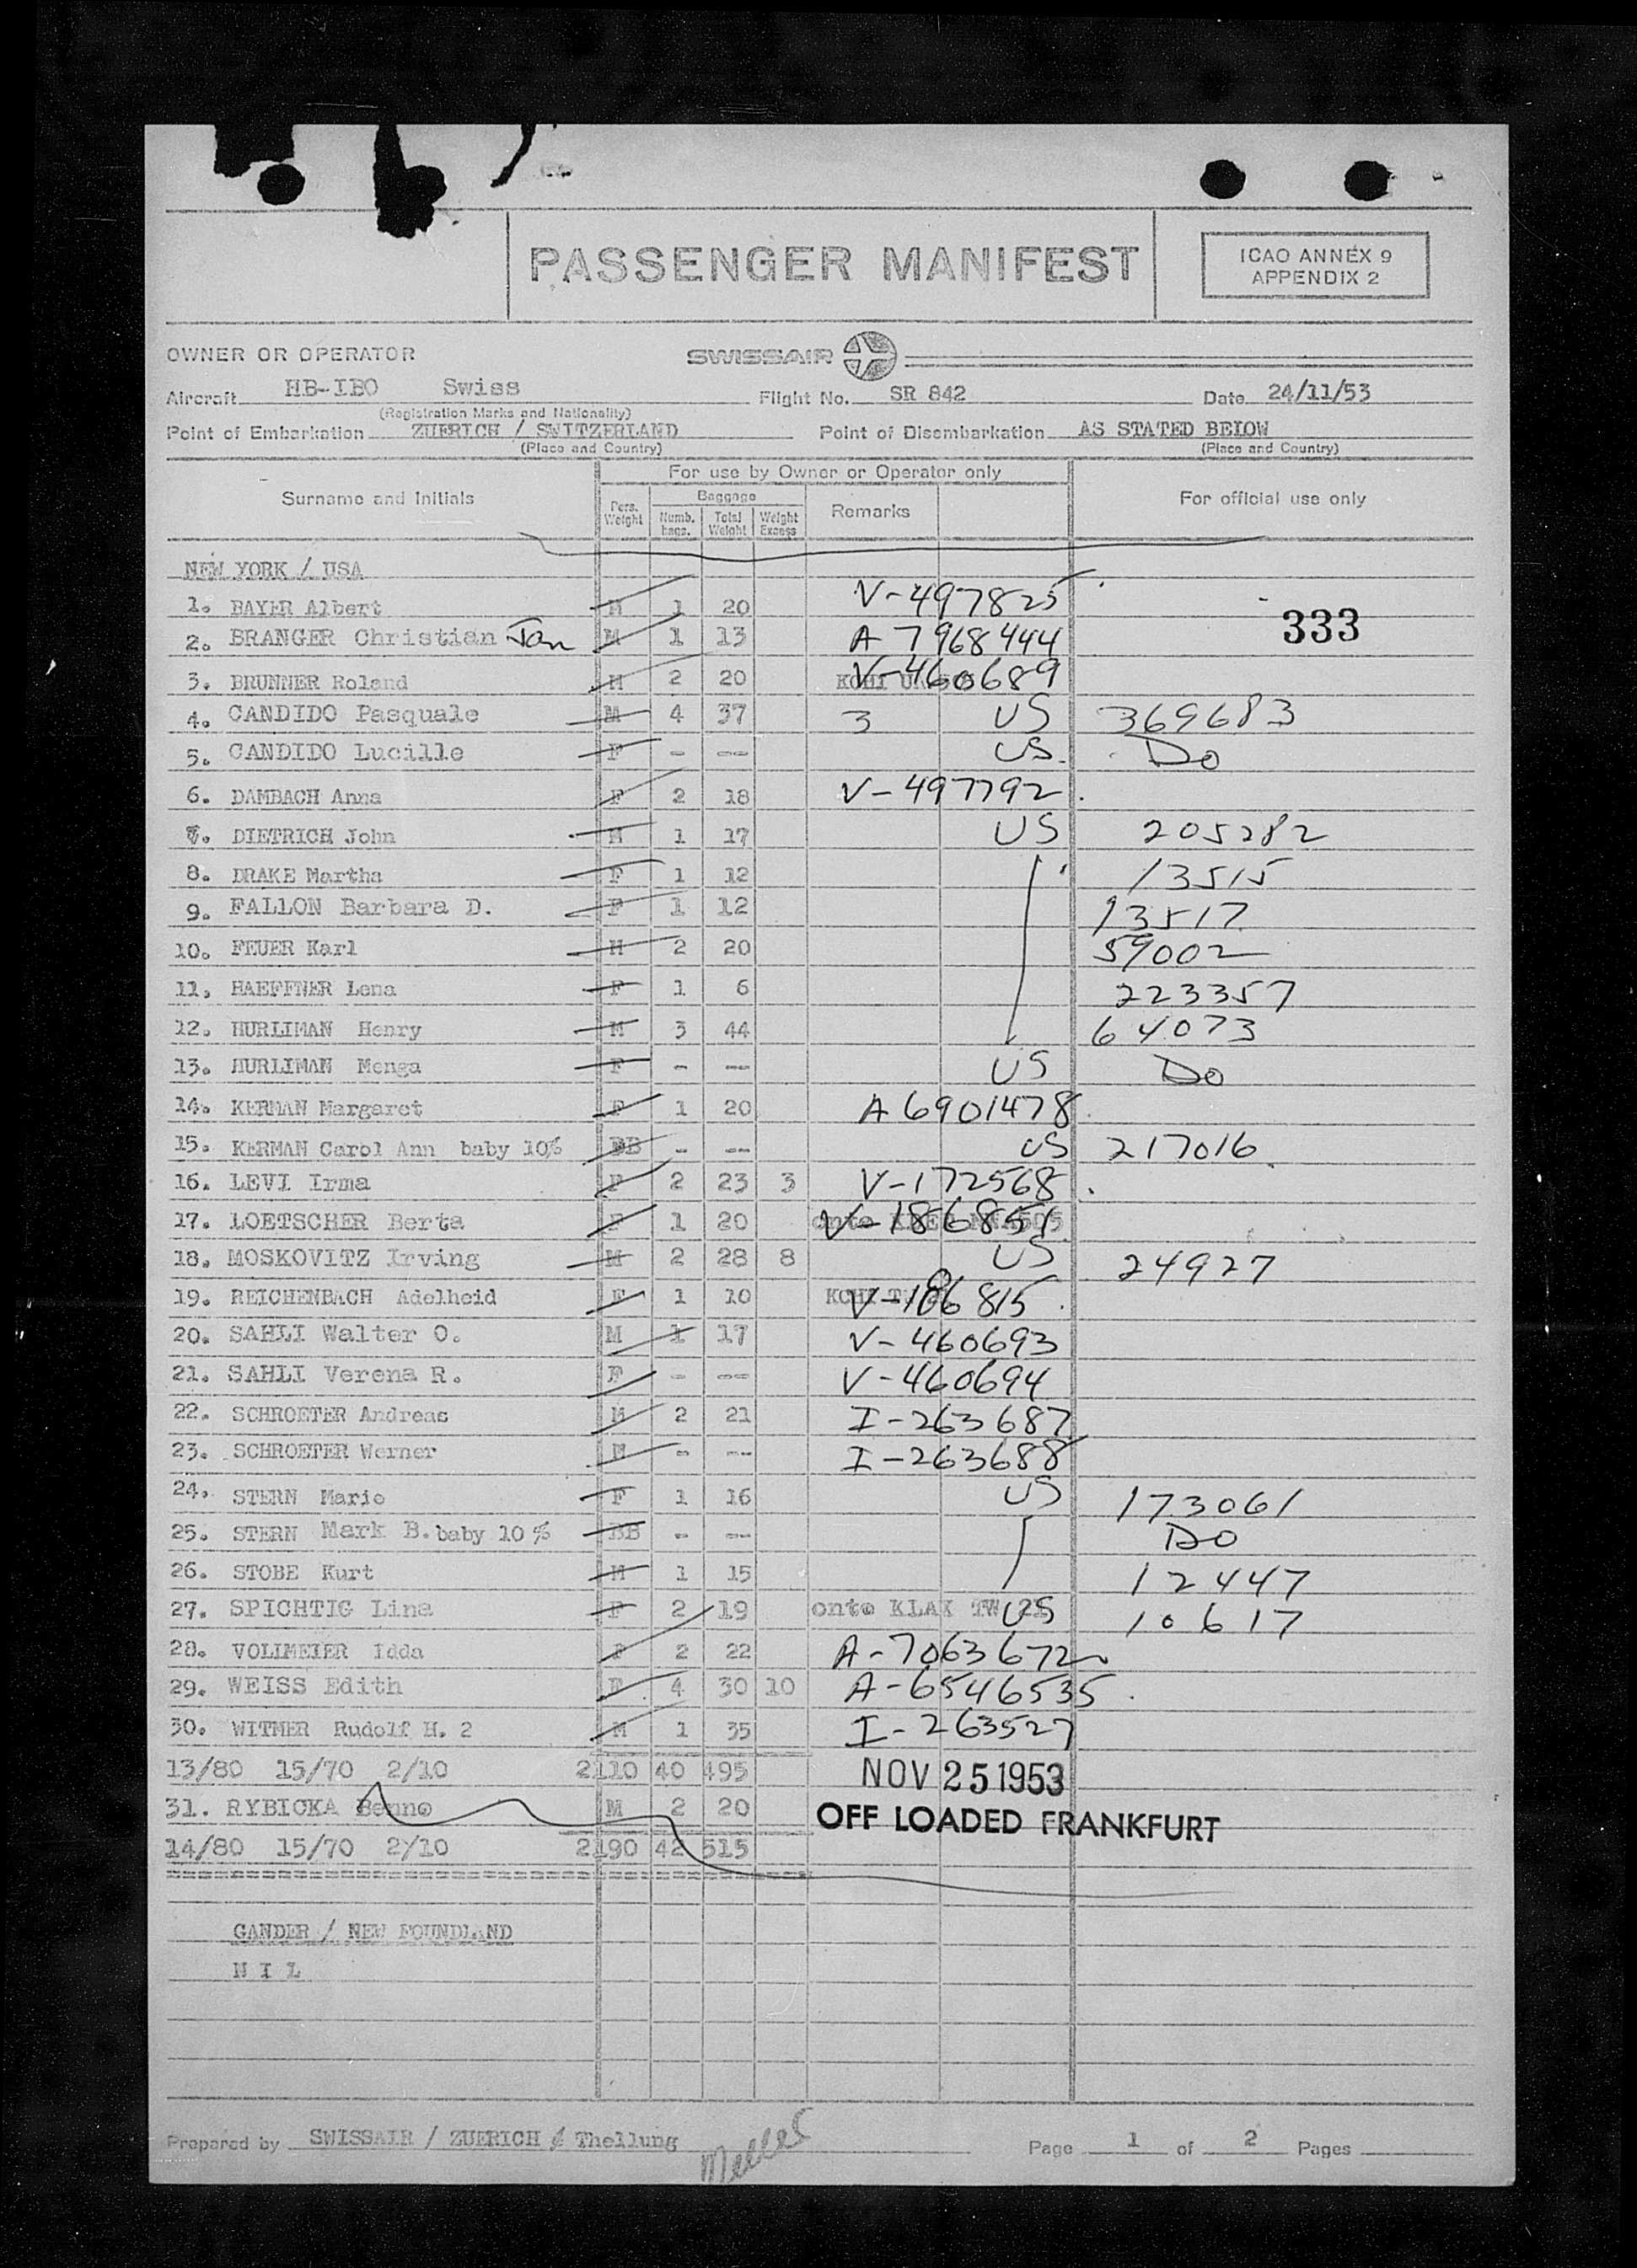 PASSENGER MANIFEST
ICAO ANNEX 9
APPENDIX 2
OWNER OR OPERATOR SWISSAIR
Aircraft HB-IBO Swiss Flight No. SR 842 Date 24/11/53
(Registration Marks and Nationality)
Point of Embarkation ZUERICH / SWITZERLAND Point of Disembarkation AS STATED BELOW
(Place and Country) (Place and Country)
For use by Owner or Operator only
Surname and Initials Pers. Weight Baggage Numb. bags. Total Weight Weight Excess Remarks For official use only
NEW YORK / USA
1. BAYER Albert M 1 20 V-497825
333
2. BRANGER Christian Jon M 1 13 A 7968444
3. BRUNNER Roland M 2 20 KCHI V-460689
4. CANDIDO Pasquale M 4 37 3 US 369683
5. CANDIDO Lucille F - -- US. Do
6. DAMBACH Anna F 2 18 V-497792.
7. DIETRICH John M 1 17 US 205282
8. DRAKE Martha F 1 12 13515
9. FALLON Barbara D. F 1 12 13517
10. FEUER Karl M 2 20 59002
11. HAEFFNER Lena F 1 6 223357
12. HURLIMAN Henry M 3 44 64073
13. HURLIMAN Menga F - -- US Do
14. KERMAN Margaret F 1 20 A 6901478
15. KERMAN Carol Ann baby 10% BB - -- US 217016
16. LEVI Irma F 2 23 3 V-172568
17. LOETSCHER Berta F 1 20 onto V-186851
18. MOSKOVITZ Irving M 2 28 8 US 24927
19. REICHENBACH Adelheid F 1 10 KCHI V-186815
20. SAHLI Walter O. M 1 17 V-460693
21. SAHLI Verena R. F - -- V-460694
22. SCHROETER Andreas M 2 21 I-263687
23. SCHROETER Werner M - -- I-263688
24. STERN Marie F 1 16 US 173061
25. STERN Mark B. baby 10% BB - -- Do
26. STOBE Kurt M 1 15 12447
27. SPICHTIG Lina F 2 19 onto KLAX TW US 10617
28. VOLLMEIER Idda F 2 22 A-7063672
29. WEISS Edith F 4 30 10 A-6546535
30. WITMER Rudolf H. 2 M 1 35 I-263527
13/80 15/70 2/10 2110 40 495 NOV 25 1953
31. RYBICKA Benno M 2 20 OFF LOADED FRANKFURT
14/80 15/70 2/10 2190 42 515
GANDER / NEW FOUNDLAND
N I L
Prepared by SWISSAIR / ZUERICH / Thellung Page 1 of 2 Pages